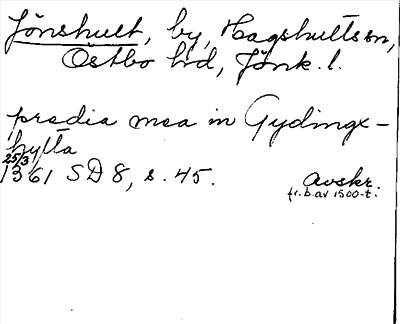 Jönshult, by, Hagshults sn,
Östbo hd, Jönk. l.
predia mea in Gydinge-
hylta
25/3
1361 SD 8, s. 45.
Avskr.
fr. b. av 1500-t.